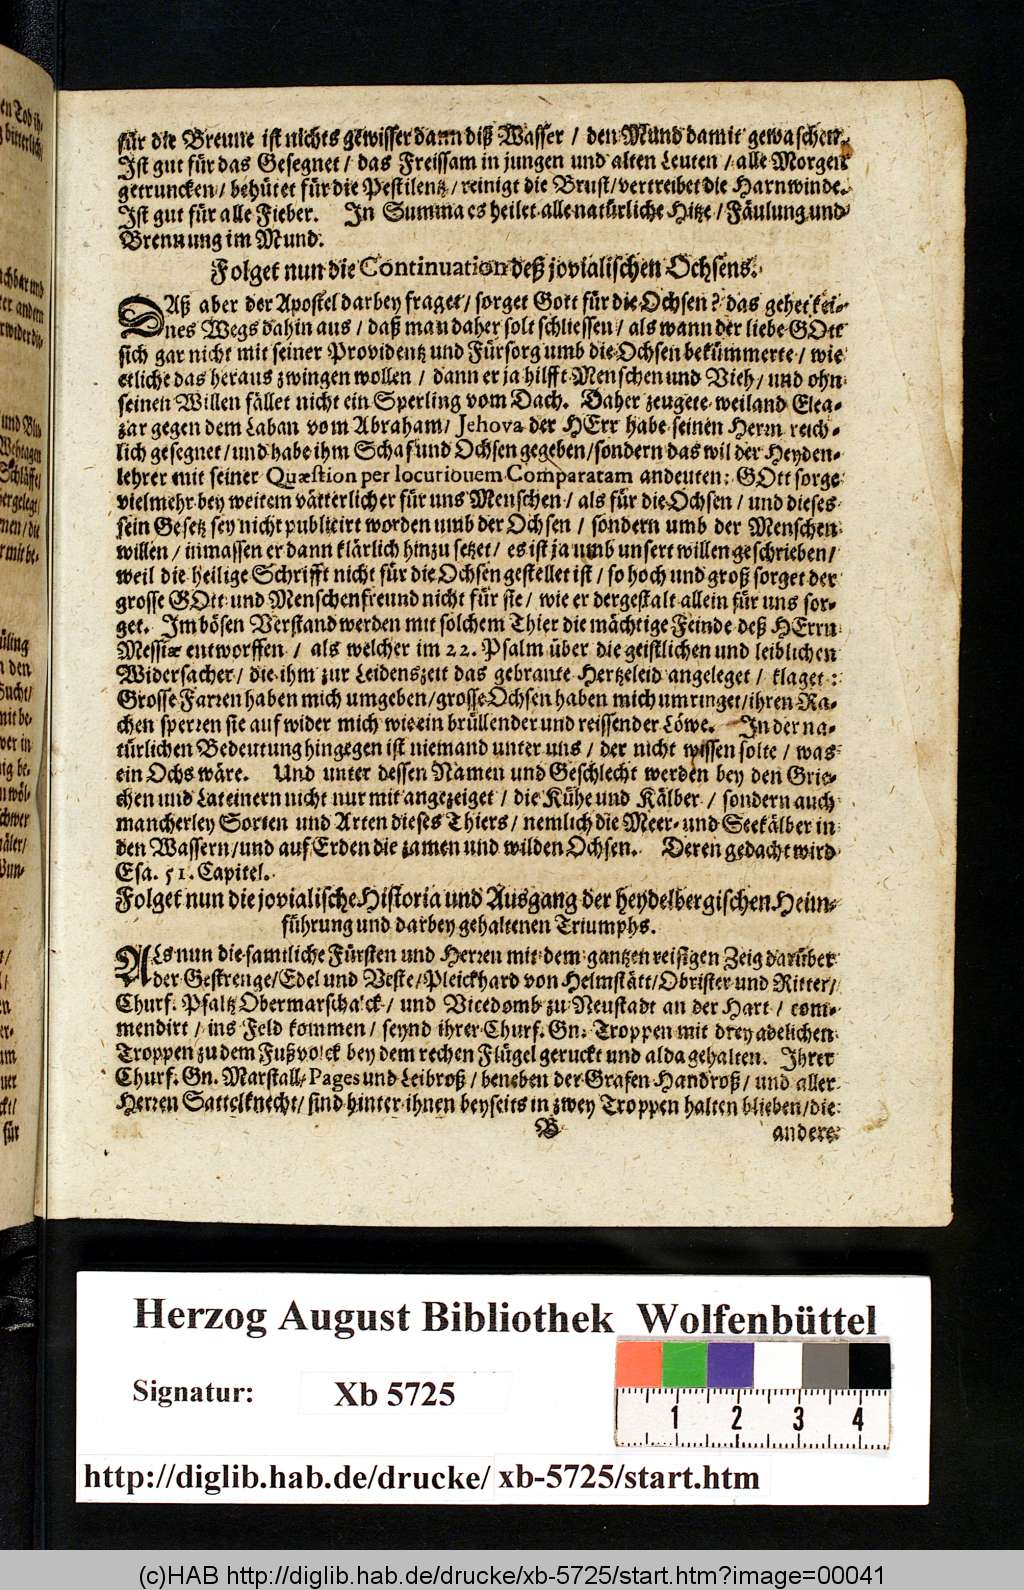 für die Breune ist nichts gewisser dann diß Wasser / den Mund damit gewaschen.
Ist gut für das Gesegnet / das Freissam in jungen und alten Leuten / alle Morgen
getruncken / behütet für die Pestilentz / reinigt die Brust / vertreibet die Harnwinde.
Ist gut für alle Fieber. In Summa es heilet alle natürliche Hitze / Fäulung und
Brennung im Mund.
Folget nun die Continuation deß jovialischen Ochsens.
DAß aber der Apostel darbey fraget / sorget Gott für die Ochsen? das gehet kei-
nes Wegs dahin aus / daß man daher solt schliessen / als wann der liebe GOtt
sich gar nicht mit seiner Providentz und Fürsorg umb die Ochsen bekümmerte / wie
etliche das heraus zwingen wollen / dann er ja hilfft Menschen und Vieh / und ohn
seinen Willen fället nicht ein Sperling vom Dach. Daher zeugete weiland Elea-
zar gegen dem Laban vom Abraham / Jehova der HErr habe seinen Herrn reich-
lich gesegnet / und habe ihm Schaf und Ochsen gegeben / sondern das wil der Heyden-
lehrer mit seiner Quæstion per locutiouem Comparatam andeuten: GOtt sorge
vielmehr bey weitem vätterlicher für uns Menschen / als für die Ochsen / und dieses
sein Gesetz sey nicht publicirt worden umb der Ochsen / sondern umb der Menschen
willen / inmassen er dann klärlich hinzu setzet / es ist ja umb unsert willen geschrieben /
weil die heilige Schrifft nicht für die Ochsen gestellet ist / so hoch und groß sorget der
grosse GOtt und Menschenfreund nicht für sie / wie er dergestalt allein für uns sor-
get. Im bösen Verstand werden mit solchem Thier die mächtige Feinde deß HErrn
Messiæ entworffen / als welcher im 22. Psalm über die geistlichen und leiblichen
Widersacher / die ihm zur Leidenszeit das gebrante Hertzeleid angeleget / klaget:
Grosse Farren haben mich umgeben / grosse Ochsen haben mich umringet / ihren Ra-
chen sperren sie auf wider mich wie ein brüllender und reissender Löwe. In der na-
türlichen Bedeutung hingegen ist niemand unter uns / der nicht wissen solte / was
ein Ochs wäre. Und unter dessen Namen und Geschlecht werden bey den Grie-
chen und Lateinern nicht nur mit angezeiget / die Kühe und Kälber / sondern auch
mancherley Sorten und Arten dieses Thiers / nemlich die Meer- und Seekälber in
den Wassern / und auf Erden die zamen und wilden Ochsen. Deren gedacht wird
Esa. 51. Capitel.
Folget nun die jovialische Historia und Ausgang der heydelbergischen Heim-
führung und darbey gehaltenen Triumphs.
ALs nun die samtliche Fürsten und Herren mit dem gantzen reisigen Zeig darüber
der Gestrenge / Edel und Veste / Pleickhard von Helmstätt / Obrister und Ritter /
Churf. Pfaltz Obermarschalck / und Vicedomb zu Neustadt an der Hart / com-
mendirt / ins Feld kommen / seynd ihrer Churf. Gn. Troppen mit drey adelichen
Troppen zu dem Fußvolck bey dem rechen Flügel geruckt und alda gehalten. Ihrer
Churf. Gn. Marstall-Pages und Leibroß / beneben der Grafen Handroß / und aller
Herren Sattelknecht / sind hinter ihnen beyseits in zwey Troppen halten blieben / die
B
andere
Herzog August Bibliothek Wolfenbüttel
Signatur: Xb 5725
1 2 3 4
http://diglib.hab.de/drucke/ xb-5725/start.htm
(c)HAB http://diglib.hab.de/drucke/xb-5725/start.htm?image=00041